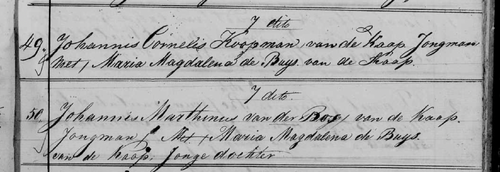 7 dito
49. Johannis Cornelis Koopman van de Kaap Jongman
Met Maria Magdalena de Buys van de Kaap.
7 dito
50. Johannis Marthinus van der Bos van de Kaap.
Jongman Met Maria Magdalena de Buys.
van de Kaap. Jonge dochter